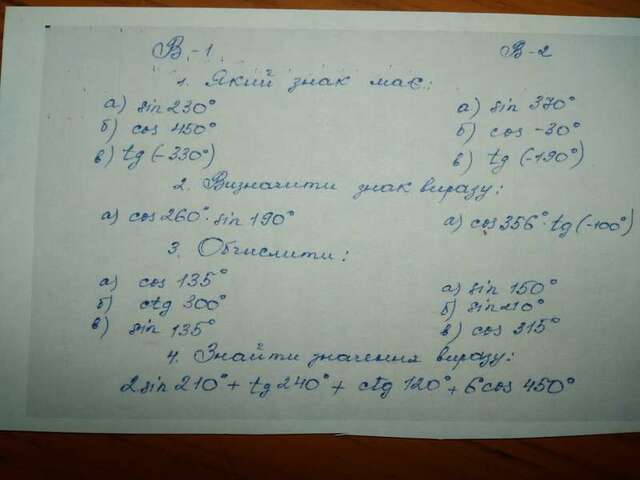 В-1 В-2
1. Який знак має:
а) sin 230° а) sin 370°
б) cos 450° б) cos -30°
в) tg (-330°) в) tg (-190°)
2. Визначити знак виразу:
а) cos 260° · sin 190° а) cos 356° · tg (-100°)
3. Обчислити:
а) cos 135° а) sin 150°
б) ctg 300° б) sin 210°
в) sin 135° в) cos 315°
4. Знайти значення виразу:
2 sin 210° + tg 240° + ctg 120° + 6 cos 450°